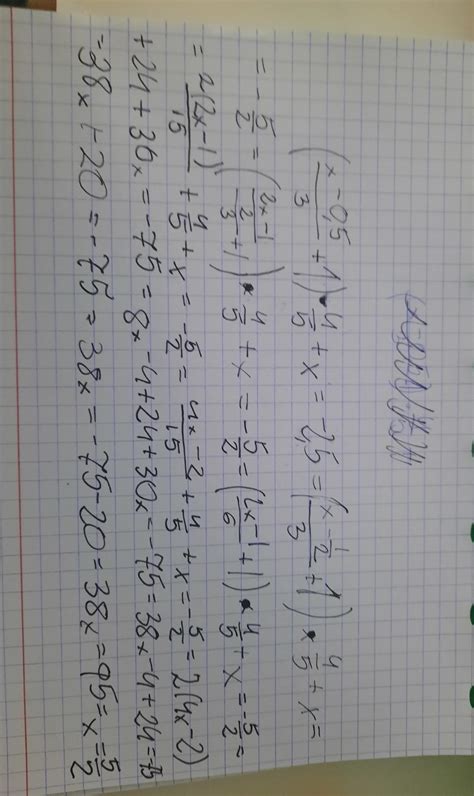 ((x-0,5)/3 + 1) • 4/5 + x = -2,5 = ((x - 1/2)/3 + 1) • 4/5 + x =
= - 5/2 = (((2x-1)/2)/3 + 1) • 4/5 + x = - 5/2 = ((2x-1)/6 + 1) • 4/5 + x = - 5/2 =
= 2(2x-1)/15 + 4/5 + x = - 5/2 = (4x-2)/15 + 4/5 + x = - 5/2 = 2(4x-2)
+24+30x = -75 = 8x-4+24+30x = -75 = 38x-4+24 = -75
-38x+20 = -75 = 38x = -75-20 = 38x = 95 = x = - 5/2